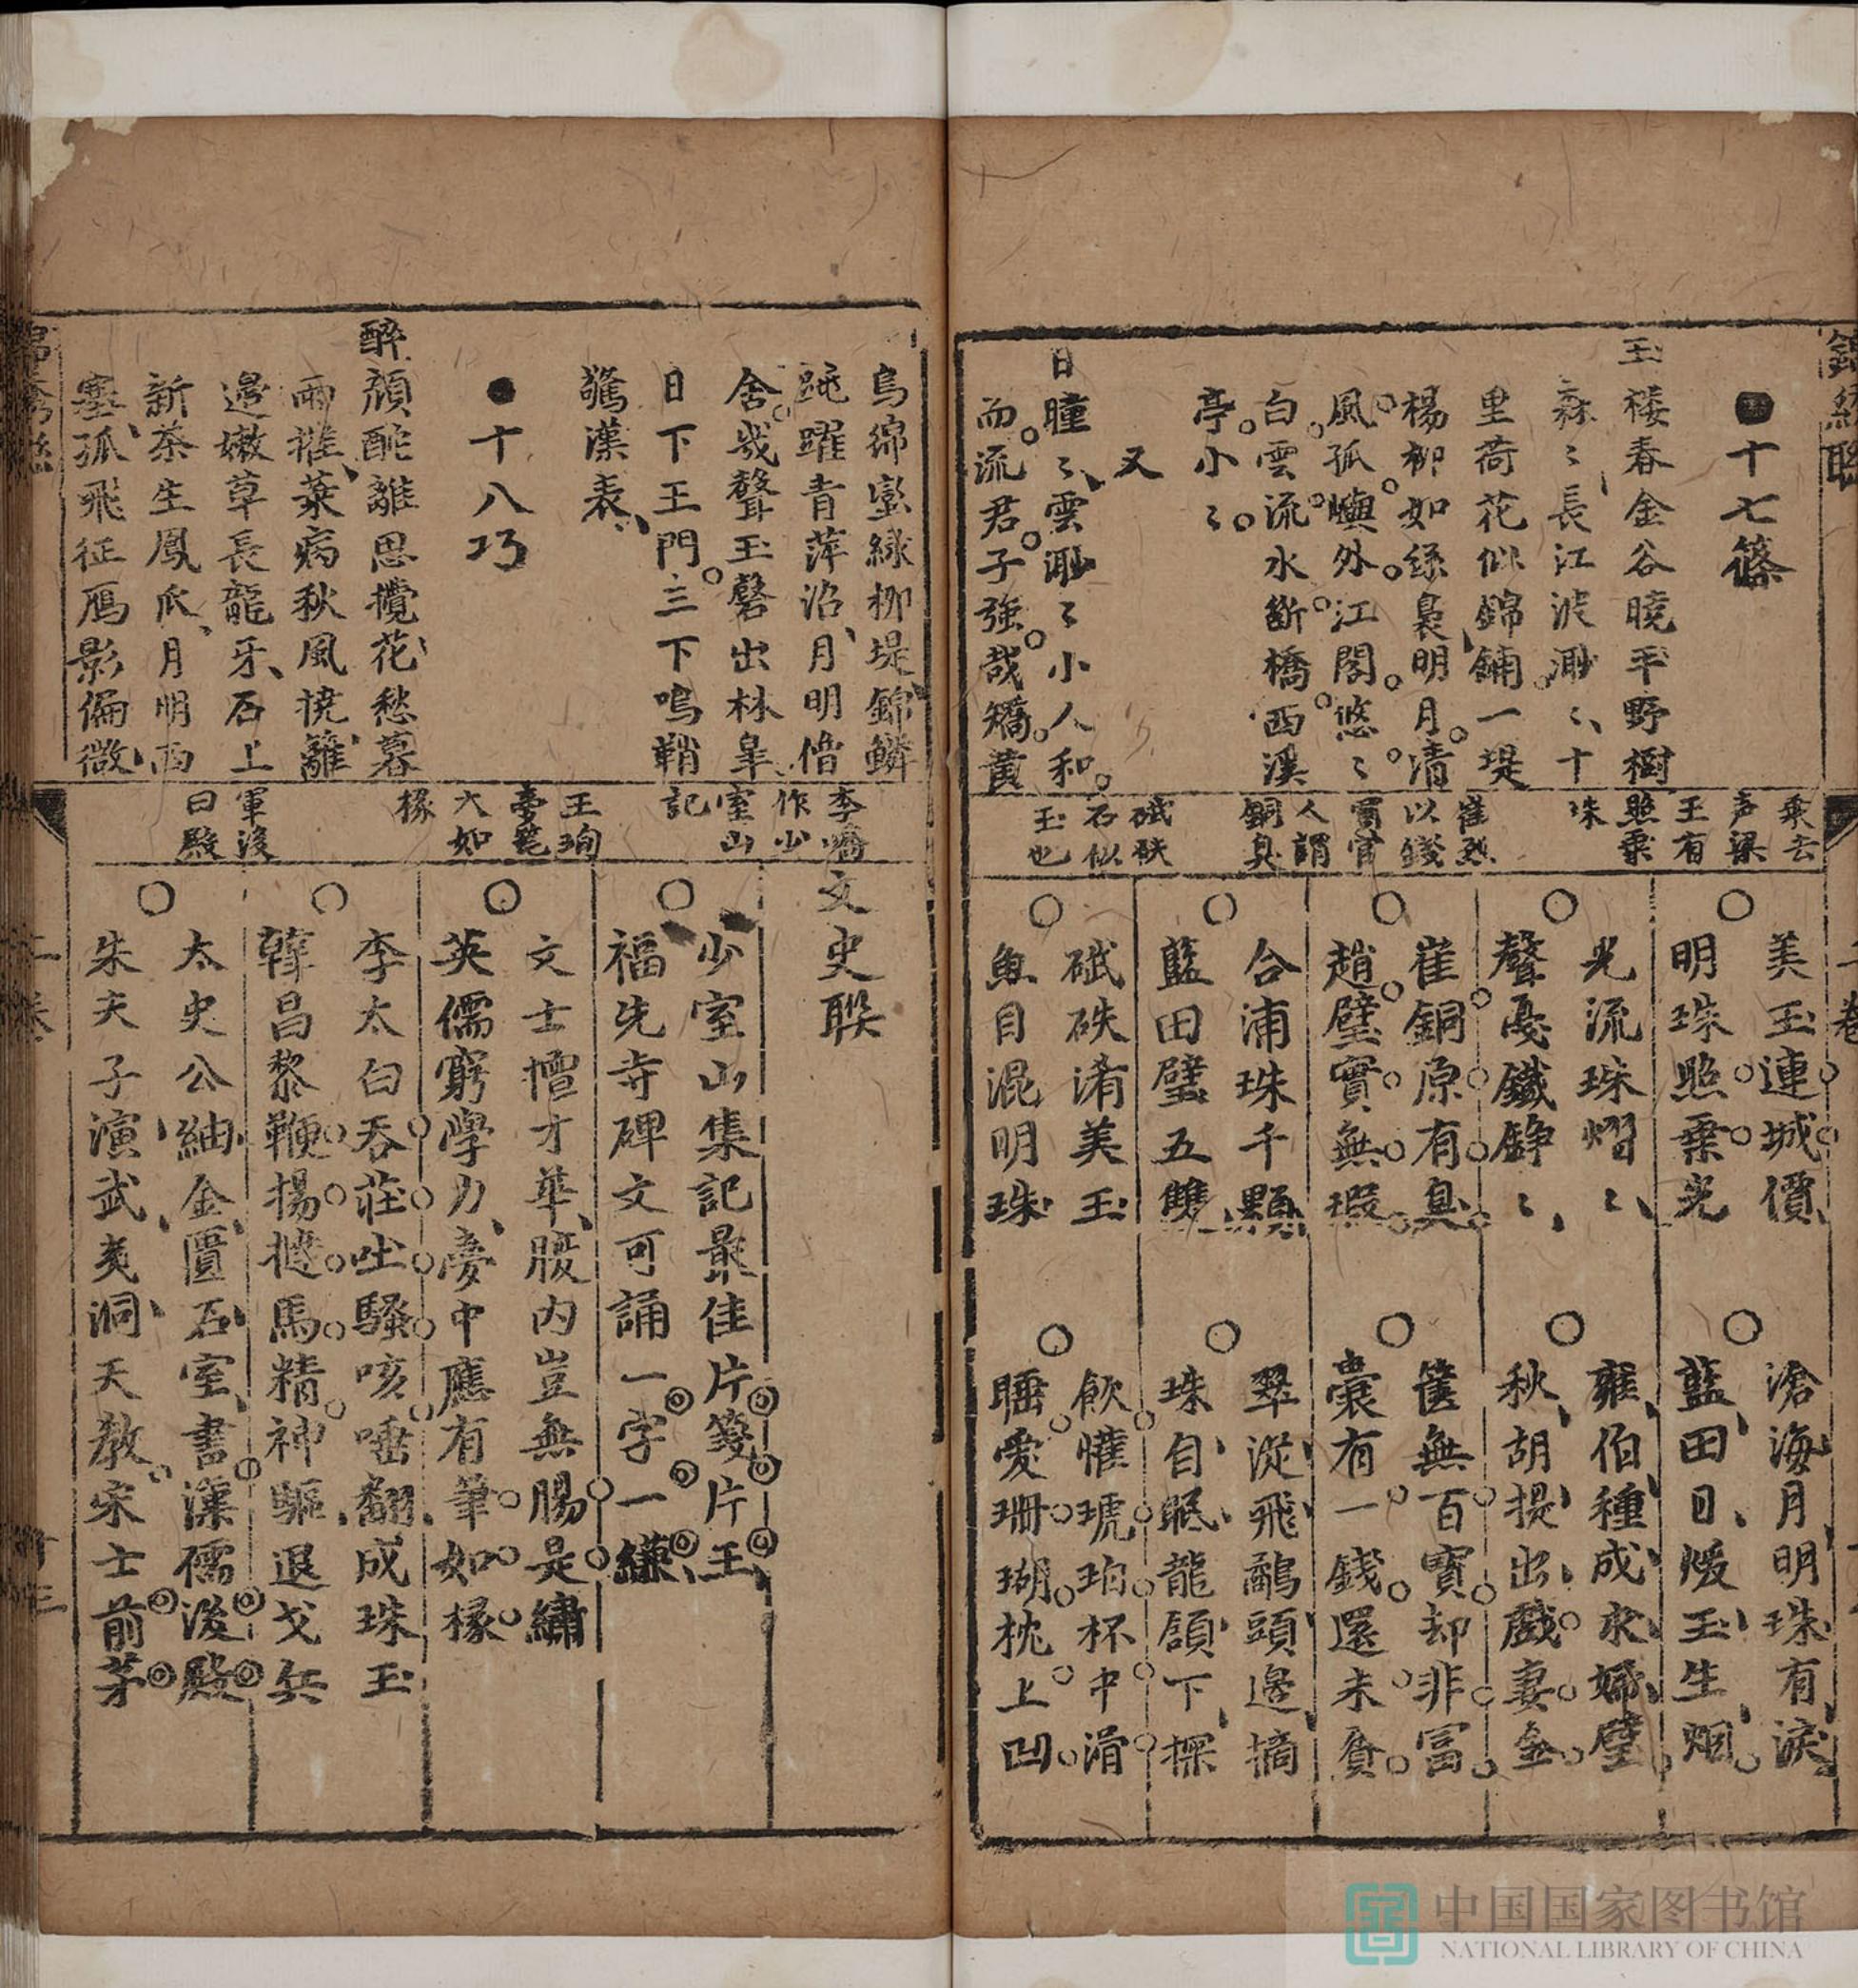 錦繡聯
二卷
十七篠
玉楼春金谷曉平野樹
森〻長江波渺〻十
里荷花似錦鋪一堤
楊柳如絲裊明月清
風孤嶼外江閣悠〻
白雲流水斷橋西溪
亭小〻
又
日曈〻雲渺〻小人和
而流君子強哉矯黃
乗去
声梁
王有
照乗
珠
崔烈
以錢
買官
人謂
銅臭
碔砆
石似
玉也
美玉連城價
明珠照乗光
光流珠熠〻
聲戞鐵錚〻
崔銅原有臭
趙璧實無瑕
合浦珠千顆
藍田璧五雙
碔砆淆美玉
魚目混明珠
滄海月明珠有淚
藍田日煖玉生烟
雍伯種成求婦璧
秋胡提出戲妻金
篋無百寶却非冨
囊有一錢還未貧
翠從飛鷸頭邊摘
珠自眠龍頷下探
飲懽琥珀杯中滑
睡愛珊瑚枕上凹
烏綿蠻緑柳堤錦鱗
跳躍青萍沼月明僧
舍幾聲玉磬出林皐
日下王門三下鳴鞘
驚漢表
十八巧
醉顔酡離思攪花愁暮
雨摧葉病秋風撓籬
邊嫩草長龍牙石上
新茶生鳳爪月明西
塞孤飛征鴈影偏微
李嶠
作少
室山
記
王珣
夢筆
大如
椽
軍後
曰殿
文史聯
少室山集記最佳片箋片玉
福先寺碑文可誦一字一縑
文士擅才華腹内豈無腸是繡
英儒窮學力夢中應有筆如椽
李太白吞莊吐騷咳唾翻成珠玉
韓昌黎鞭揚撾馬精神驅退戈兵
太史公紬金匱石室書漢儒後殿
朱夫子演武夷洞天教宋士前茅
中国国家图书馆
NATIONAL LIBRARY OF CHINA